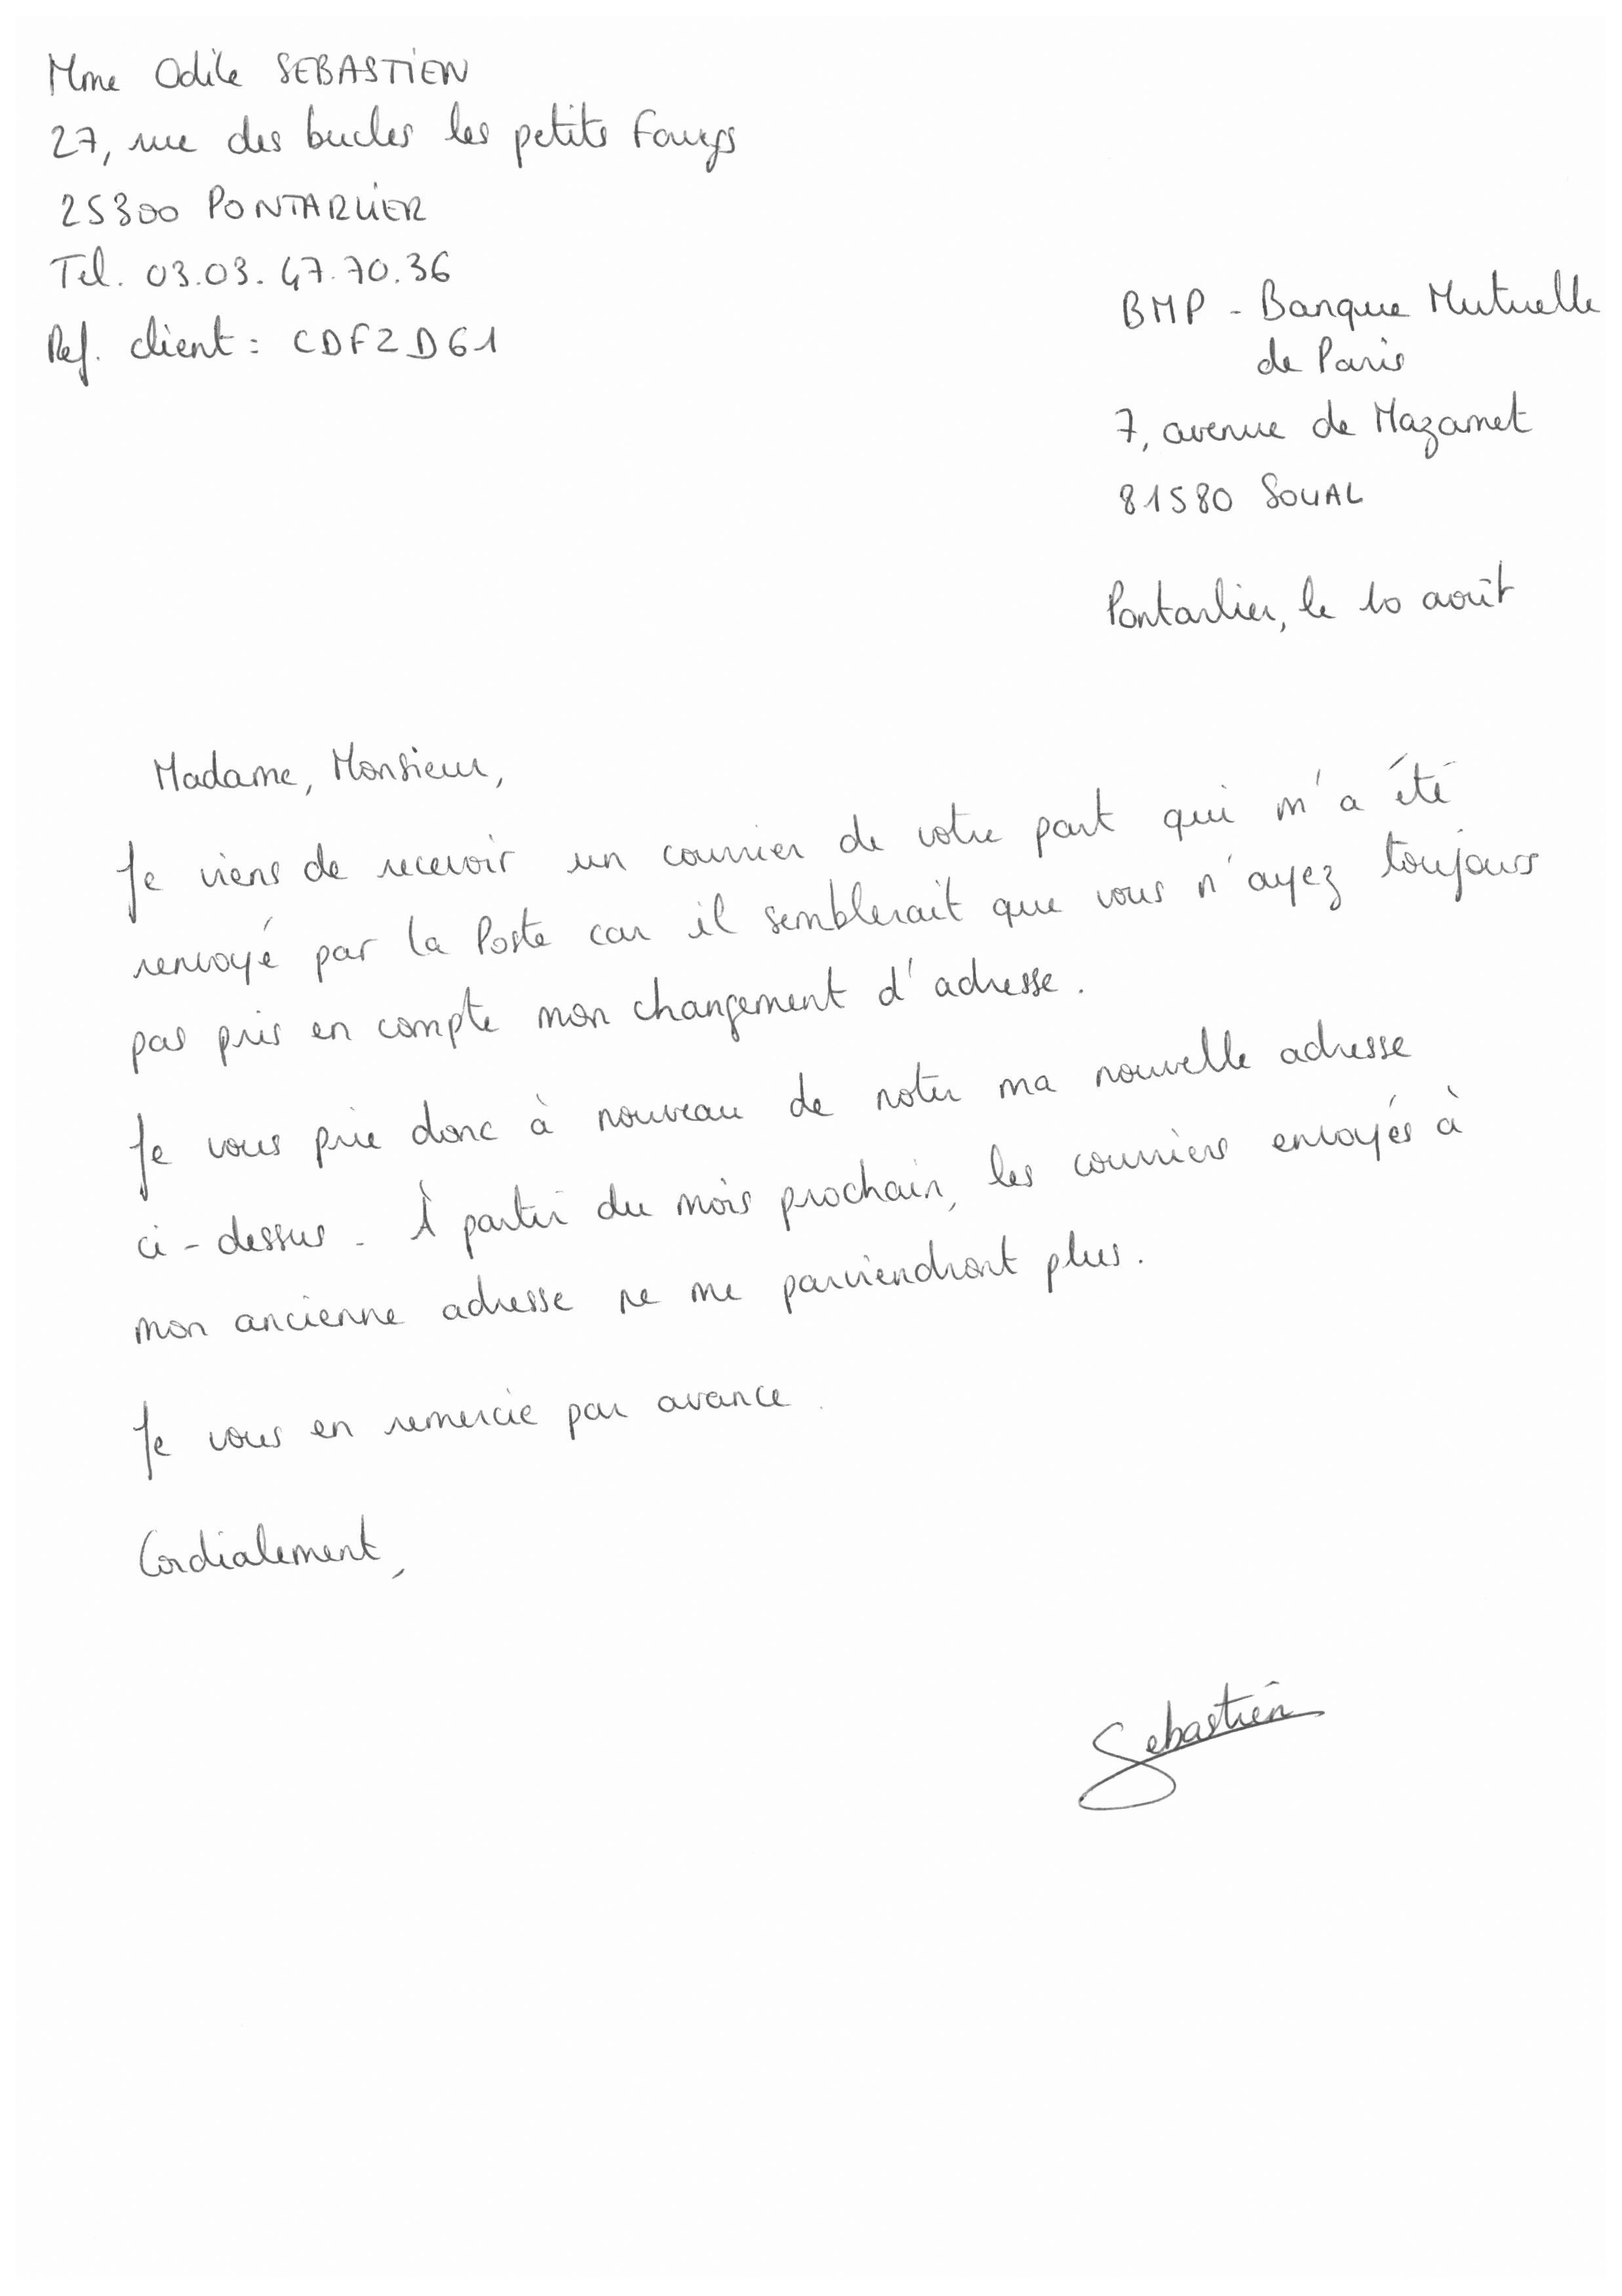 Mme Odile SEBASTIEN
27, rue des bucles les petits Fourgs
25300 PONTARLIER
Tel. 03.03.47.70.36
Ref. client : CDFZD61
BMP - Banque Mutuelle
de Paris
7, avenue de Mazamet
81580 SOUAL
Pontarlier, le 10 août
Madame, Monsieur,
Je viens de recevoir un courrier de votre part qui m'a été
renvoyé par la Poste car il semblerait que vous n'ayez toujours
pas pris en compte mon changement d'adresse.
Je vous prie donc à nouveau de noter ma nouvelle adresse
ci-dessus. À partir du mois prochain, les courriers envoyés à
mon ancienne adresse ne me parviendront plus.
Je vous en remercie par avance.
Cordialement,
Sebastien